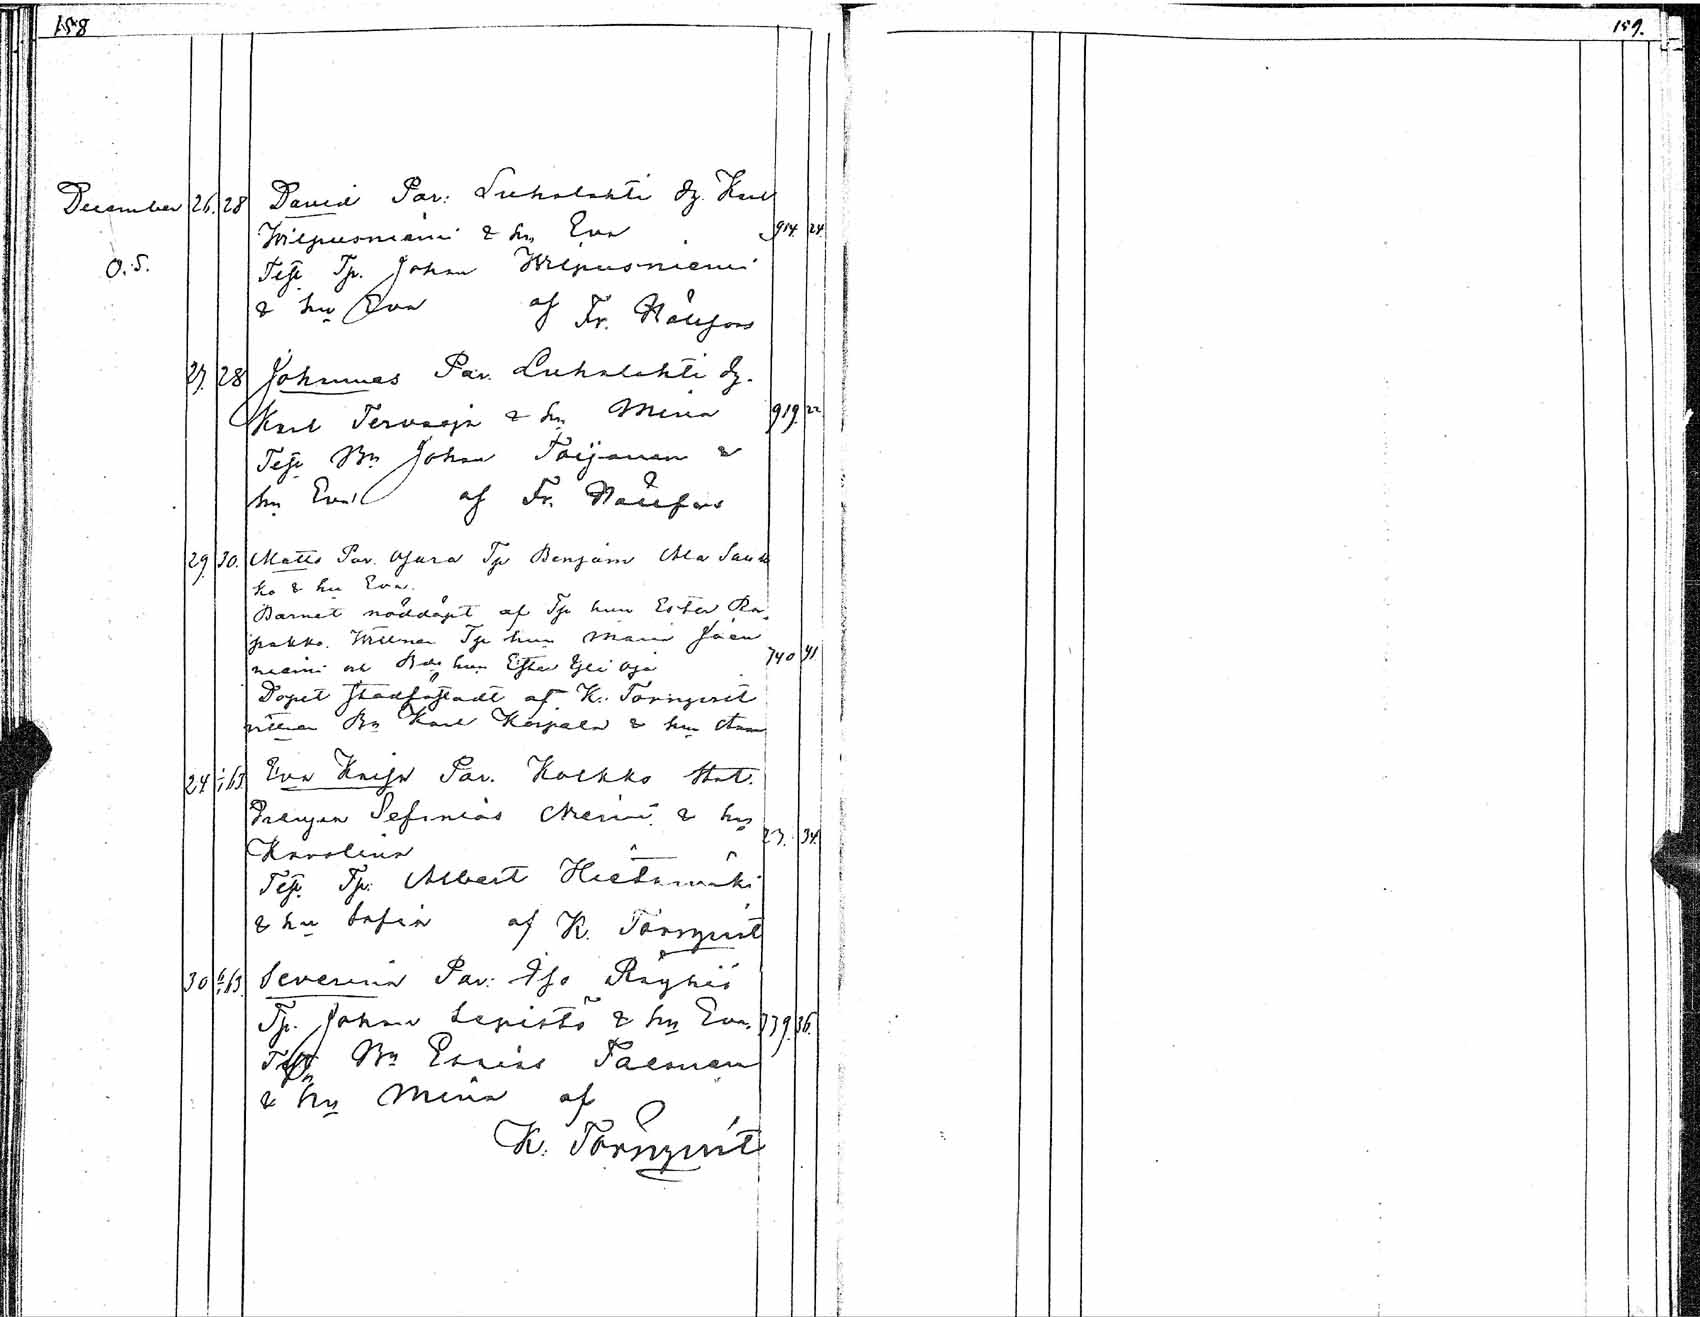 158
159.
December 26. 28 David Par: Luhalahti Iz. Karl
Wilpusniemi & hu Eva 914. 24
O. S.
Test Tp. Johan Wilpusniemi
& hu Eva af Fr. Hällfors
27. 28 Johannes Par. Luhalahti Iz.
Karl Tervaoja & hu Mina 919. 22
Test Bn Johan &
hu Eva af Fr. Hällfors
29. 30. Matts Par. Ojura Tp Benjam Ala Sauk
ko & hu Eva.
Barnet nöddöpt af Tp hun Ester Ra
pakko. Wittnen Tp hun Maria
niemi och Bds hun Ester Yli Oja 740 41
Dopet stadfästadt af K. Törnqvist
vittnen Bn Karl & hu Anna
24 1/1 63 Eva Kaisa Par. Kolkko Stat.
Drengen Sefanias & hu
Karolina 23. 34.
Test. Tp. Albert Hietamäki
& hu Sofia af K. Törnqvist
30 6/1 63 Severina Par: Iso
Tp. Johan Lepistö & hu Eva. 739. 36.
Test Bn Esaias Talonen
& hu Mina af
K. Törnqvist